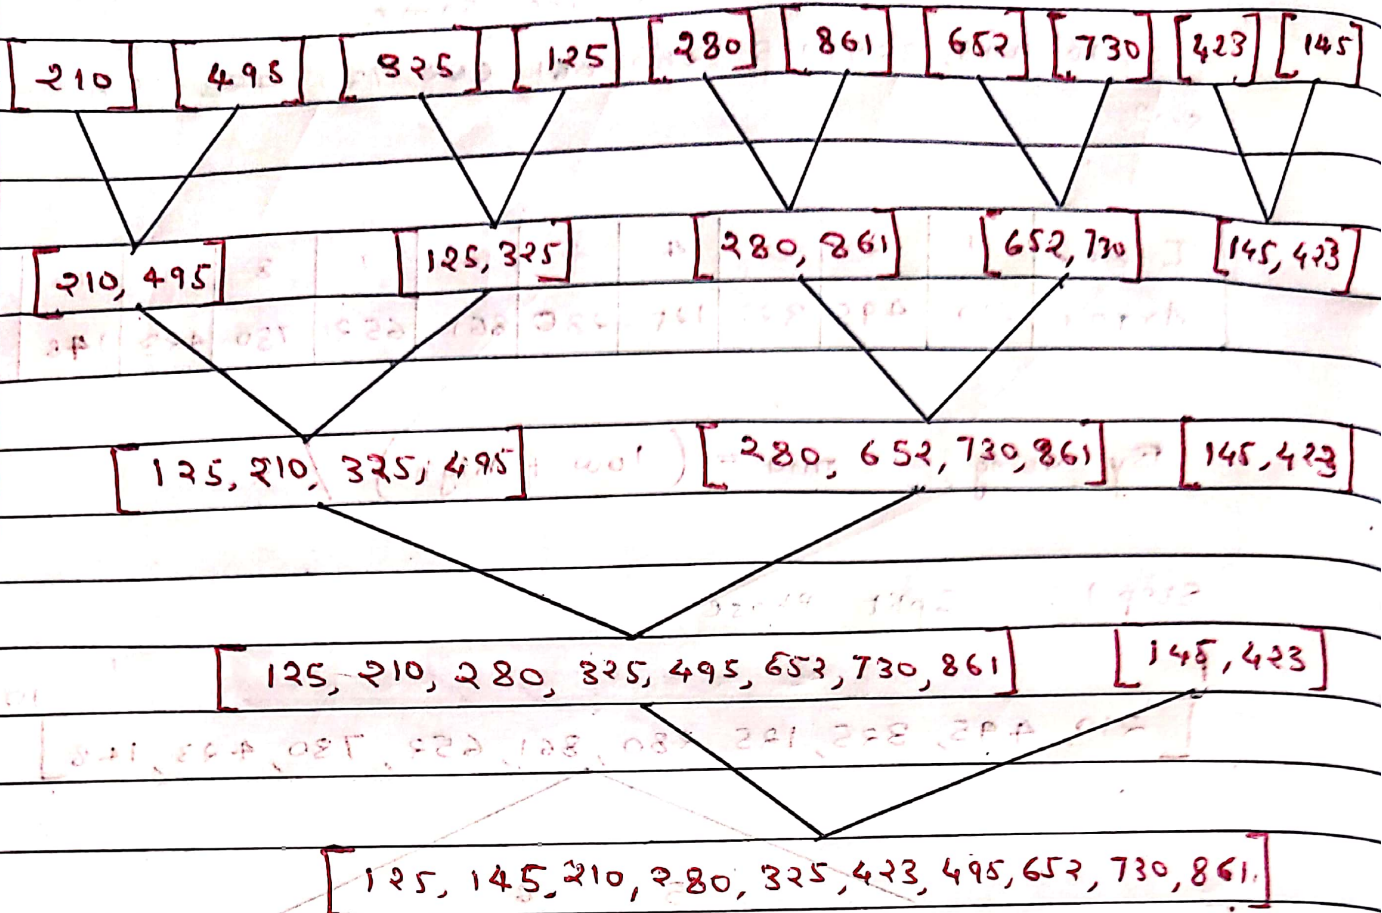 [210] [495] [325] [125] [280] [861] [652] [730] [423] [145]
[210, 495] [125, 325] [280, 861] [652, 730] [145, 423]
[125, 210, 325, 495] [280, 652, 730, 861] [145, 423]
[125, 210, 280, 325, 495, 652, 730, 861] [145, 423]
[125, 145, 210, 280, 325, 423, 495, 652, 730, 861]